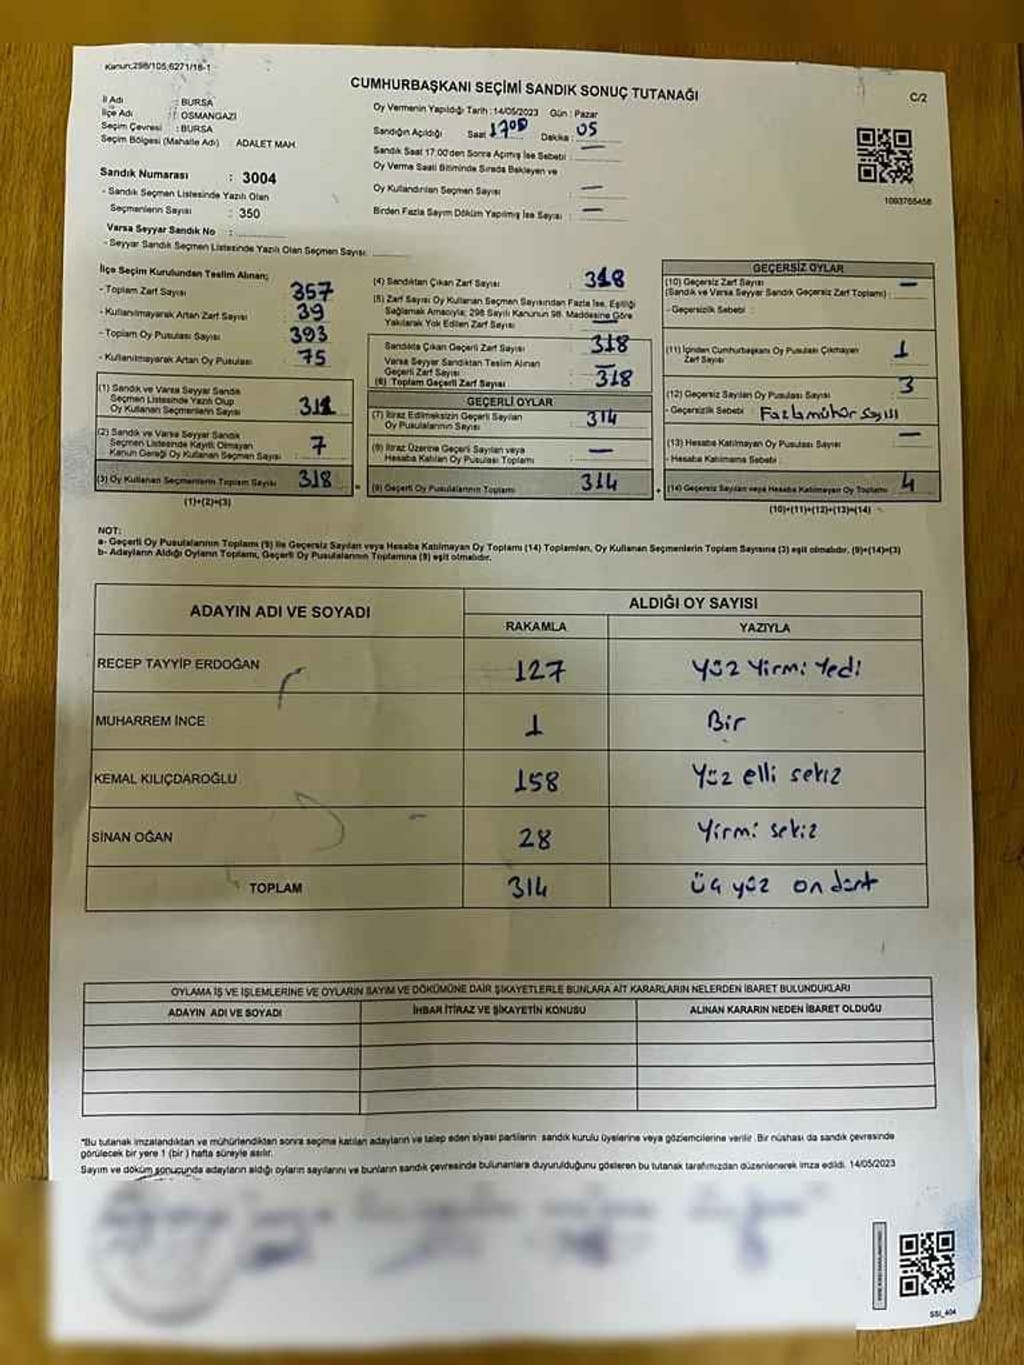 Kanun:298/105,6271/18-1
CUMHURBAŞKANI SEÇİMİ SANDIK SONUÇ TUTANAĞI
C/2
İl Adı : BURSA
İlçe Adı : OSMANGAZİ
Seçim Çevresi : BURSA
Seçim Bölgesi (Mahalle Adı) ADALET MAH.
Sandık Numarası : 3004
- Sandık Seçmen Listesinde Yazılı Olan
Seçmenlerin Sayısı : 350
Varsa Seyyar Sandık No :
- Seyyar Sandık Seçmen Listesinde Yazılı Olan Seçmen Sayısı:
Oy Vermenin Yapıldığı Tarih : 14/05/2023 Gün : Pazar
Sandığın Açıldığı Saat : 1700 Dakika : 05
Sandık Saat 17:00'den Sonra Açılmış İse Sebebi : —
Oy Verme Saati Bitiminde Sırada Bekleyen ve
Oy Kullandırılan Seçmen Sayısı : —
Birden Fazla Sayım Döküm Yapılmış İse Sayısı : —
1093765458
İlçe Seçim Kurulundan Teslim Alınan;
- Toplam Zarf Sayısı : 357
- Kullanılmayarak Artan Zarf Sayısı : 39
- Toplam Oy Pusulası Sayısı : 393
- Kullanılmayarak Artan Oy Pusulası : 75
(1) Sandık ve Varsa Seyyar Sandık
Seçmen Listesinde Yazılı Olup
Oy Kullanan Seçmenlerin Sayısı : 311
(2) Sandık ve Varsa Seyyar Sandık
Seçmen Listesinde Kayıtlı Olmayan
Kanun Gereği Oy Kullanan Seçmen Sayısı : 7
(3) Oy Kullanan Seçmenlerin Toplam Sayısı : 318
(1)+(2)=(3)
(4) Sandıktan Çıkan Zarf Sayısı : 318
(5) Zarf Sayısı Oy Kullanan Seçmen Sayısından Fazla İse, Eşitliği
Sağlamak Amacıyla; 298 Sayılı Kanunun 98. Maddesine Göre
Yakılarak Yok Edilen Zarf Sayısı : —
Sandıkta Çıkan Geçerli Zarf Sayısı : 318
Varsa Seyyar Sandıktan Teslim Alınan
Geçerli Zarf Sayısı : —
(6) Toplam Geçerli Zarf Sayısı : 318
GEÇERLİ OYLAR
(7) İtiraz Edilmeksizin Geçerli Sayılan
Oy Pusulalarının Sayısı : 314
(8) İtiraz Üzerine Geçerli Sayılan veya
Hesaba Katılan Oy Pusulası Toplamı : —
(9) Geçerli Oy Pusulalarının Toplamı : 314
GEÇERSİZ OYLAR
(10) Geçersiz Zarf Sayısı
(Sandık ve Varsa Seyyar Sandık Geçersiz Zarf Toplamı) : —
- Geçersizlik Sebebi :
(11) İçinden Cumhurbaşkanı Oy Pusulası Çıkmayan
Zarf Sayısı : 1
(12) Geçersiz Sayılan Oy Pusulası Sayısı : 3
- Geçersizlik Sebebi : Fazla mühür sayısı
(13) Hesaba Katılmayan Oy Pusulası Sayısı : —
- Hesaba Katılmama Sebebi :
(14) Geçersiz Sayılan veya Hesaba Katılmayan Oy Toplamı : 4
(10)+(11)+(12)+(13)=(14)
NOT:
a- Geçerli Oy Pusulalarının Toplamı (9) ile Geçersiz Sayılan veya Hesaba Katılmayan Oy Toplamı (14) Toplamları, Oy Kullanan Seçmenlerin Toplam Sayısına (3) eşit olmalıdır. (9)+(14)=(3)
b- Adayların Aldığı Oyların Toplamı, Geçerli Oy Pusulalarının Toplamına (9) eşit olmalıdır.
ADAYIN ADI VE SOYADI
ALDIĞI OY SAYISI
RAKAMLA YAZIYLA
RECEP TAYYİP ERDOĞAN 127 Yüz Yirmi Yedi
MUHARREM İNCE 1 Bir
KEMAL KILIÇDAROĞLU 158 Yüz elli sekiz
SİNAN OĞAN 28 Yirmi sekiz
TOPLAM 314 Üç yüz on dört
OYLAMA İŞ VE İŞLEMLERİNE VE OYLARIN SAYIM VE DÖKÜMÜNE DAİR ŞİKAYETLERLE BUNLARA AİT KARARLARIN NELERDEN İBARET BULUNDUKLARI
ADAYIN ADI VE SOYADI İHBAR İTİRAZ VE ŞİKAYETİN KONUSU ALINAN KARARIN NEDEN İBARET OLDUĞU
*Bu tutanak imzalandıktan ve mühürlendikten sonra seçime katılan adayların ve talep eden siyasi partilerin sandık kurulu üyelerine veya gözlemcilerine verilir. Bir nüshası da sandık çevresinde
görülecek bir yere 1 (bir) hafta süreyle asılır.
Sayım ve döküm sonucunda adayların aldığı oyların sayılarını ve bunların sandık çevresinde bulunanlara duyurulduğunu gösteren bu tutanak tarafımızdan düzenlenerek imza edildi. 14/05/2023
SSİ_404